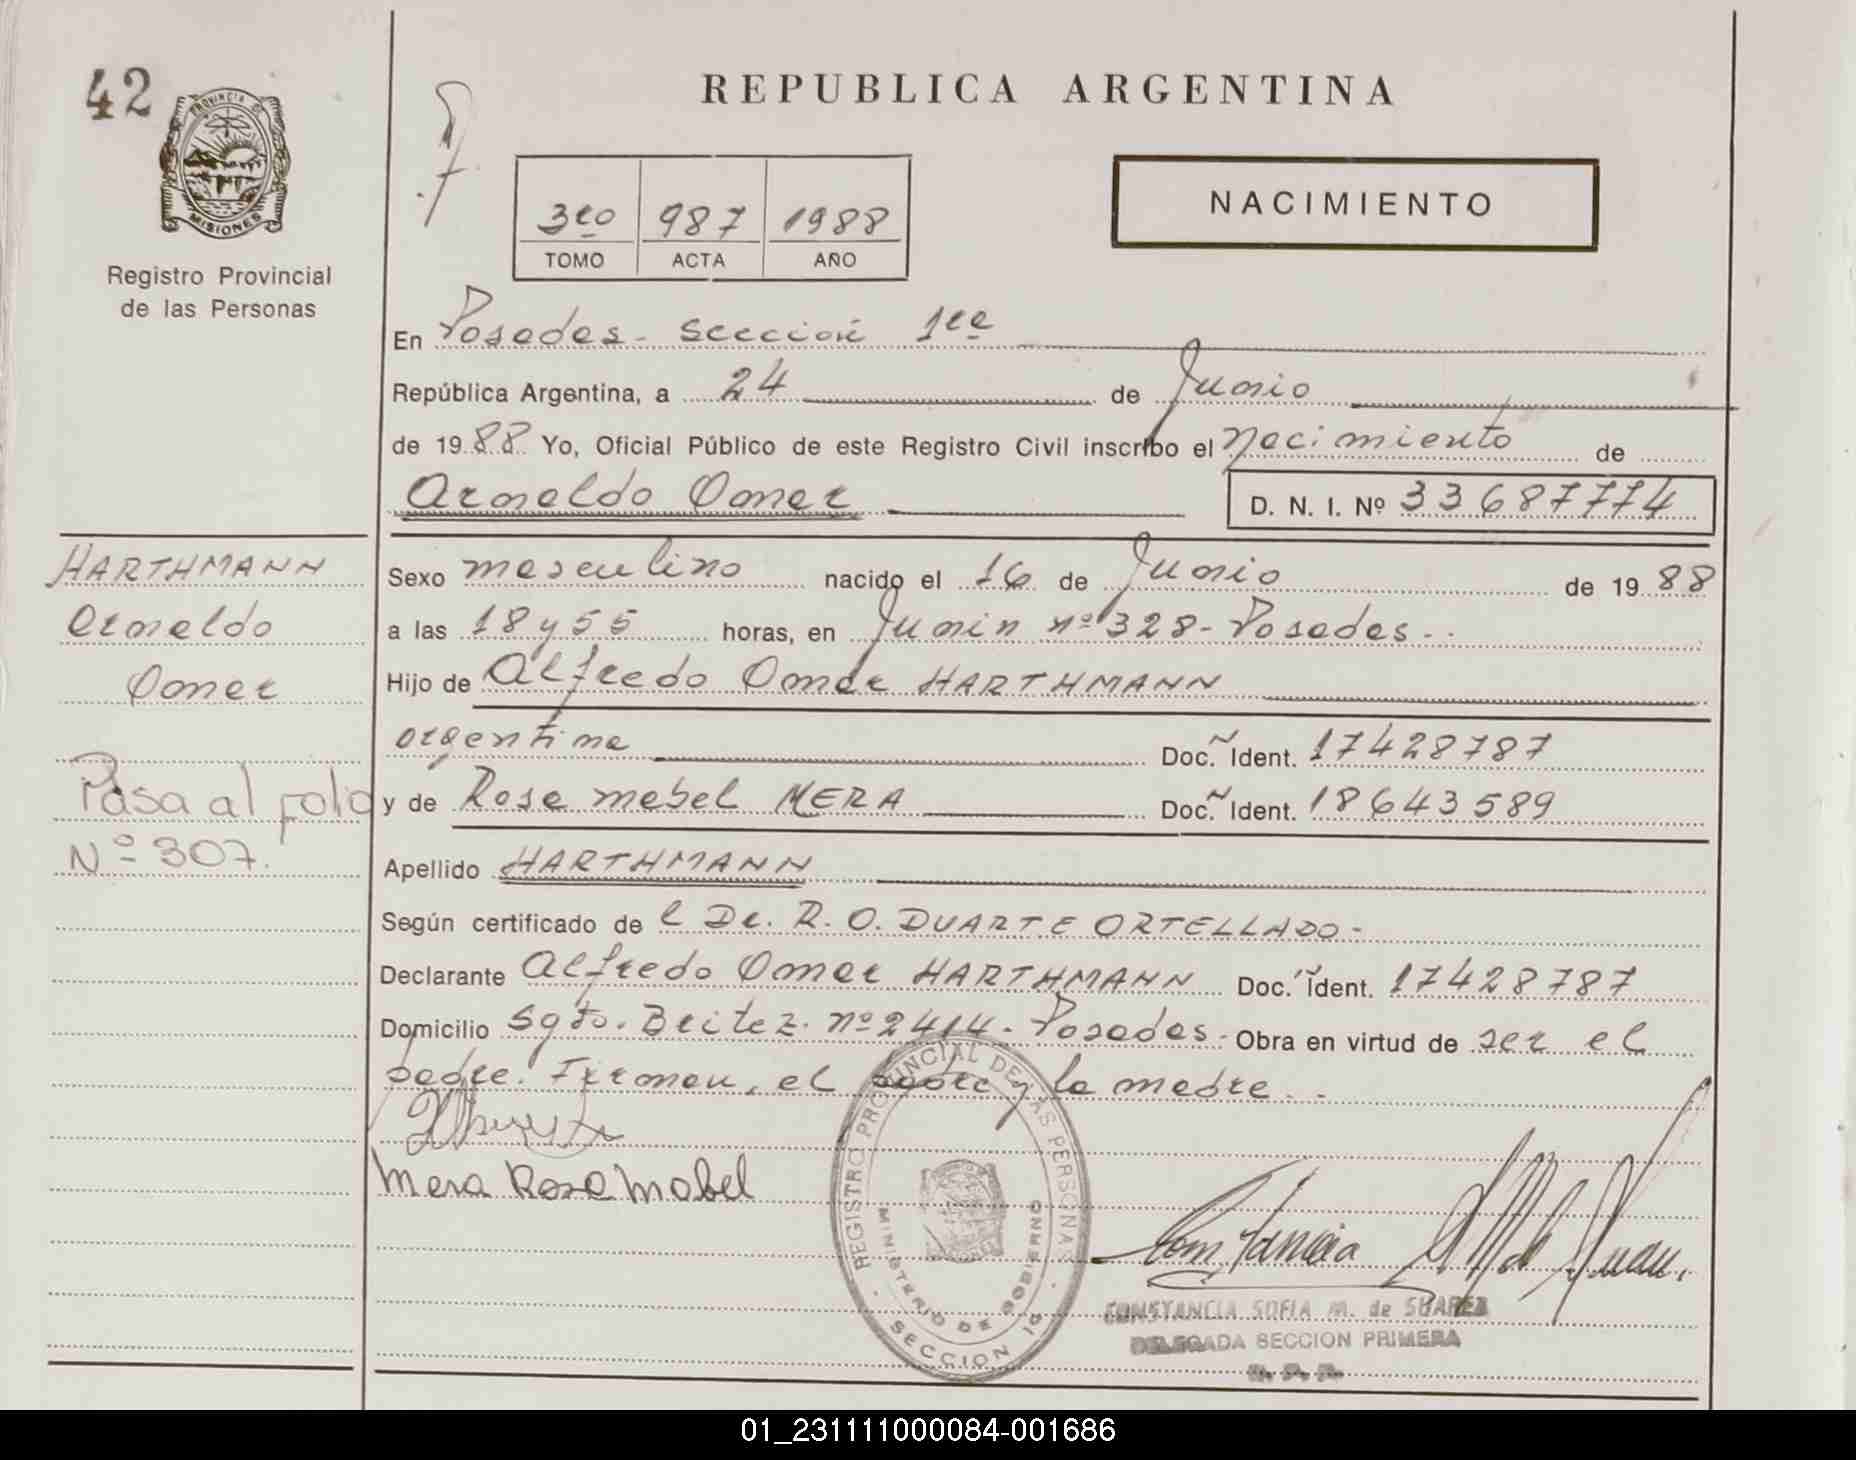 42
PROVINCIA DE
MISIONES
Registro Provincial
de las Personas
REPUBLICA ARGENTINA
3ro 987 1988
TOMO ACTA AÑO
NACIMIENTO
En Posadas - Sección 1ra
República Argentina, a 24 de Junio
de 1988 Yo, Oficial Público de este Registro Civil inscribo el Nacimiento de
Arnaldo Omar
D. N. I. Nº 33687774
HARTHMANN
Arnaldo
Omar
Pasa al folio
Nº 307.
Sexo masculino nacido el 16 de Junio de 1988
a las 18 y 55 horas, en Junin nº 328 - Posadas -.
Hijo de Alfredo Omar HARTHMANN
argentina Doc. Ident. 17428787
y de Rosa mabel MERA Doc. Ident. 18643589
Apellido HARTHMANN
Según certificado de l Dr. R. O. DUARTE ORTELLADO -
Declarante Alfredo Omar HARTHMANN Doc. Ident. 17428787
Domicilio Sgto. Britez. nº 2414 - Posadas - Obra en virtud de ser el
padre. Firman, el padre y la madre. -
Mera Rosa Mabel
REGISTRO PROVINCIAL DE LAS PERSONAS
MINISTERIO DE GOBIERNO
SECCION 1a
CONSTANCIA SOFIA M. de SUAREZ
DELEGADA SECCION PRIMERA
R. P. P.
01_231111000084-001686